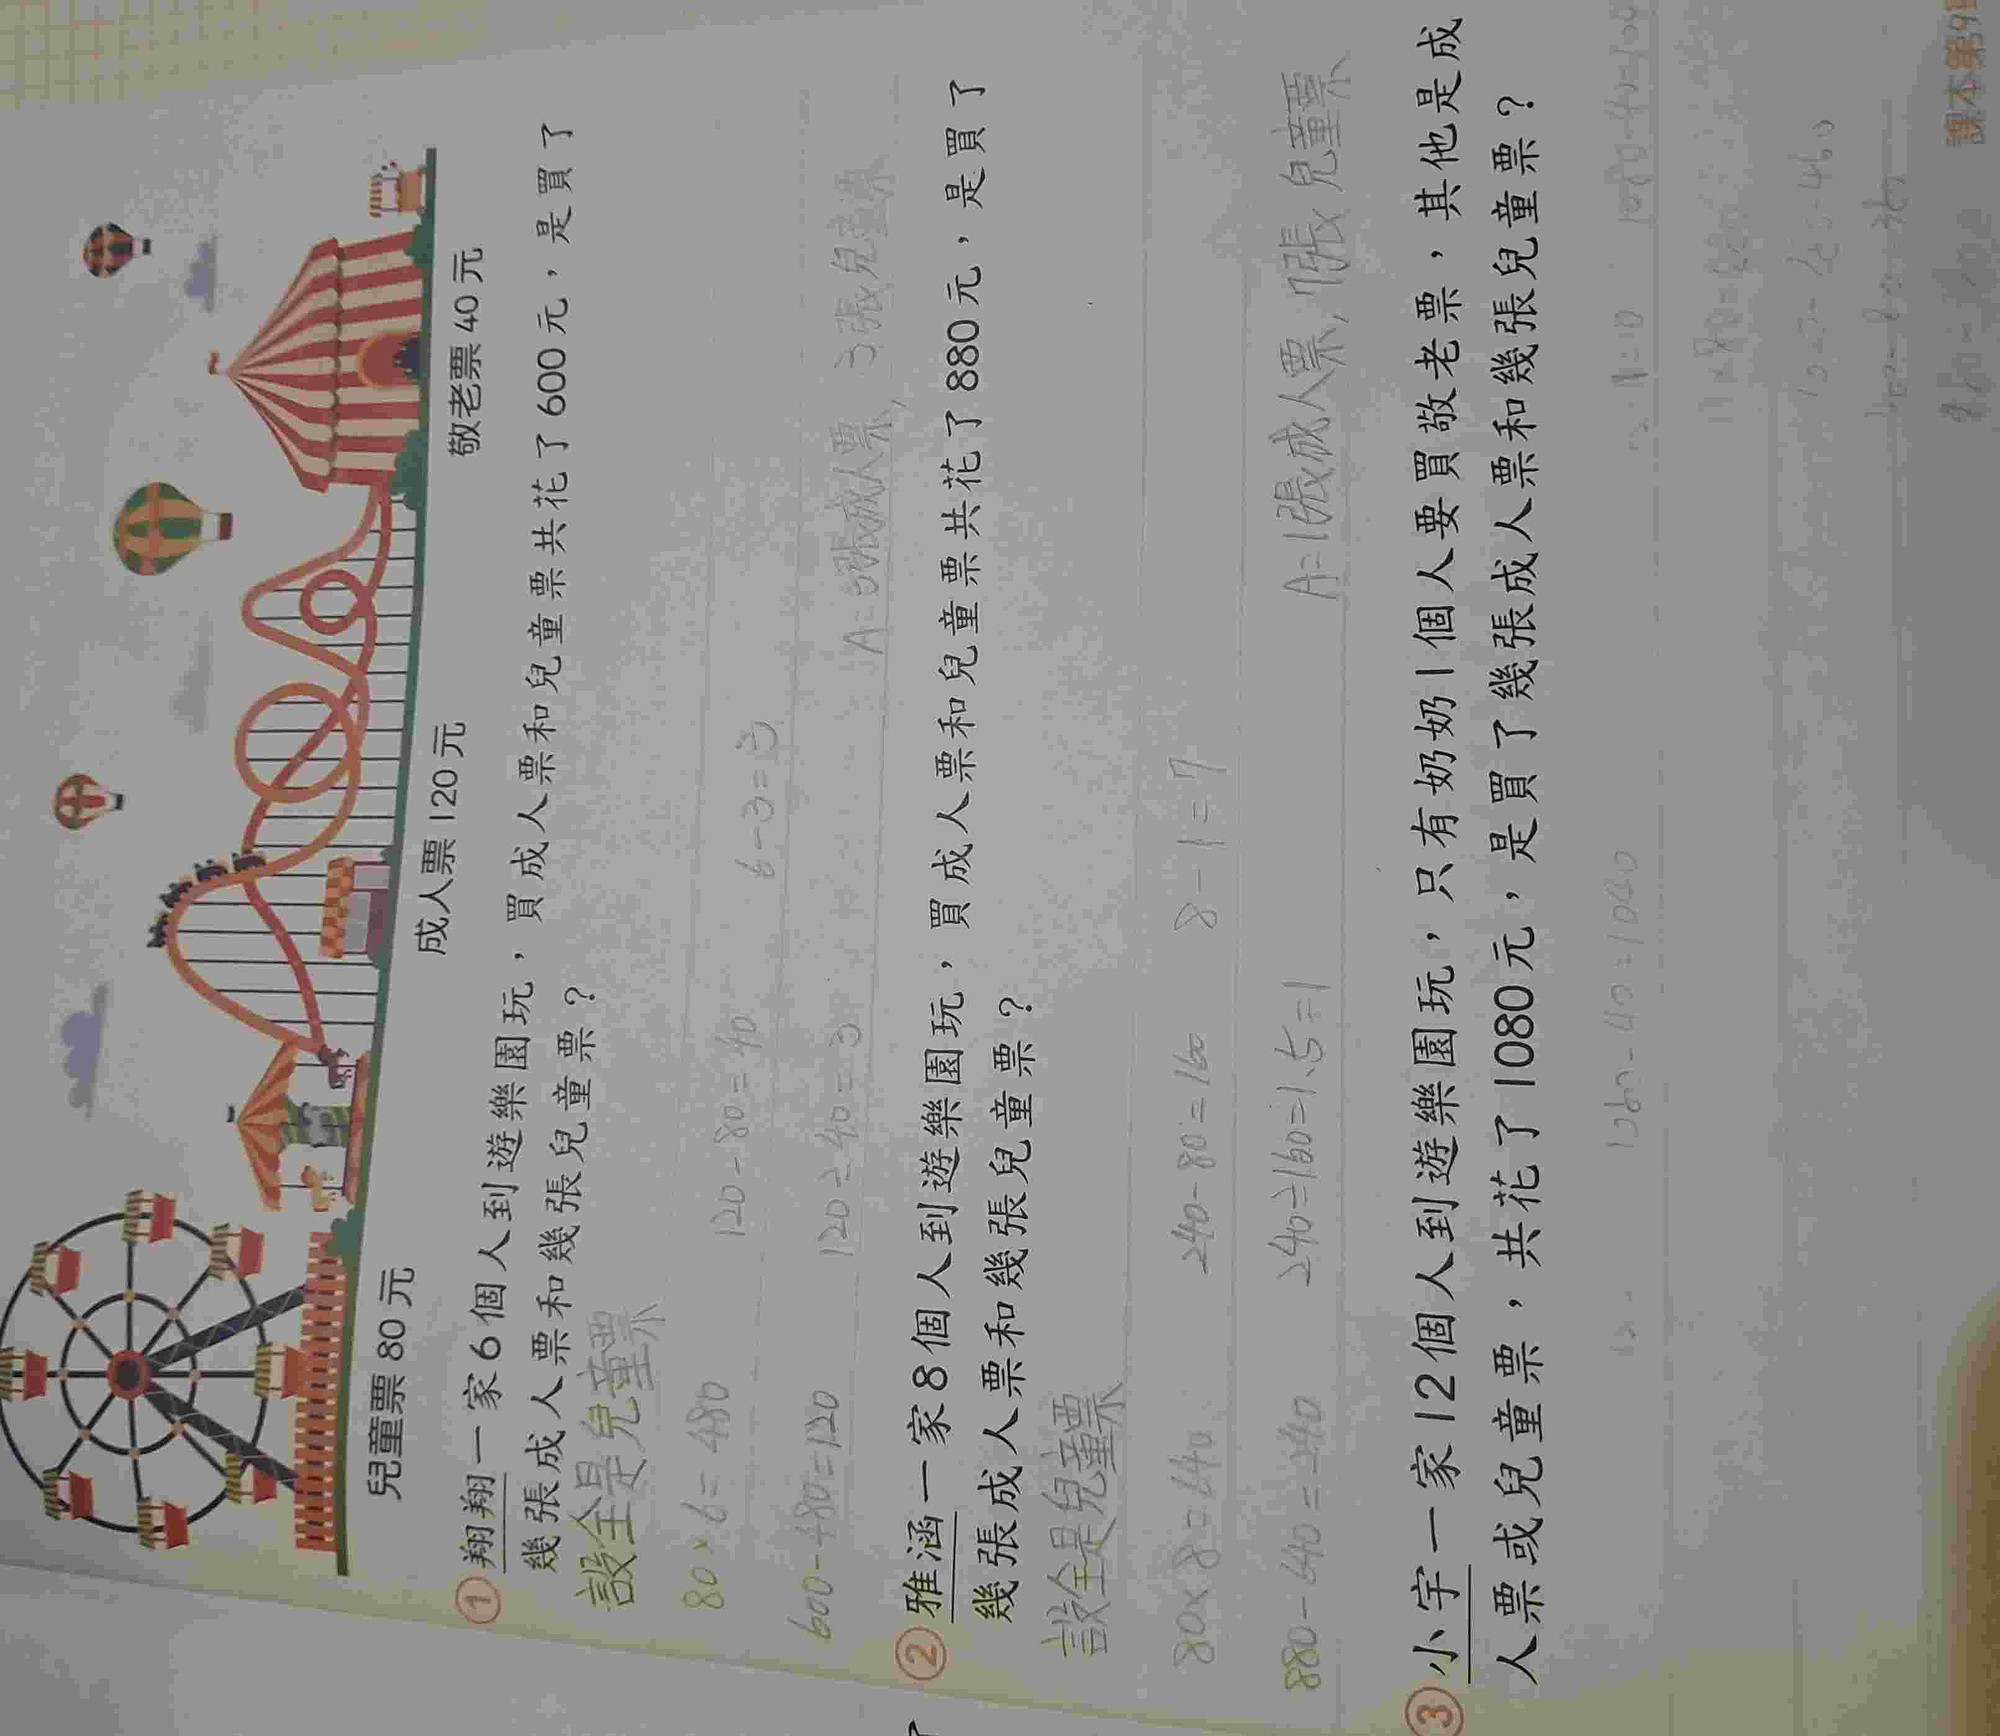 兒童票 80 元
成人票 120 元
敬老票 40 元
① 翔翔一家 6 個人到遊樂園玩，買成人票和兒童票共花了 600 元，是買了
幾張成人票和幾張兒童票？
設全是兒童票
80×6=480
120-80=40
6-3=3
600-480=120
120÷40=3
A=3張成人票，3張兒童票
② 雅涵一家 8 個人到遊樂園玩，買成人票和兒童票共花了 880 元，是買了
幾張成人票和幾張兒童票？
設全是兒童票
80×8=640
240-80=160
8-1=7
880-640=240
240÷160=1.5=1
A=1張成人票，7張兒童票
③ 小宇一家 12 個人到遊樂園玩，只有奶奶 1 個人要買敬老票，其他是成
人票或兒童票，共花了 1080 元，是買了幾張成人票和幾張兒童票？
課本第91